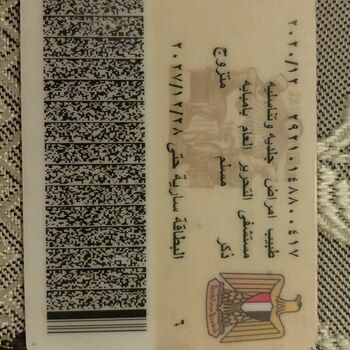 ٢٩٢١٠١٤٨٨٠٠٤١٧ ٢٠٢٠/١٢
طبيب امراض جلديه وتناسليه
مستشفى التحرير العام بامبابه
ذكر مسلم متزوج
البطاقة سارية حتى ٢٠٢٧/١٢/٢٨
٦